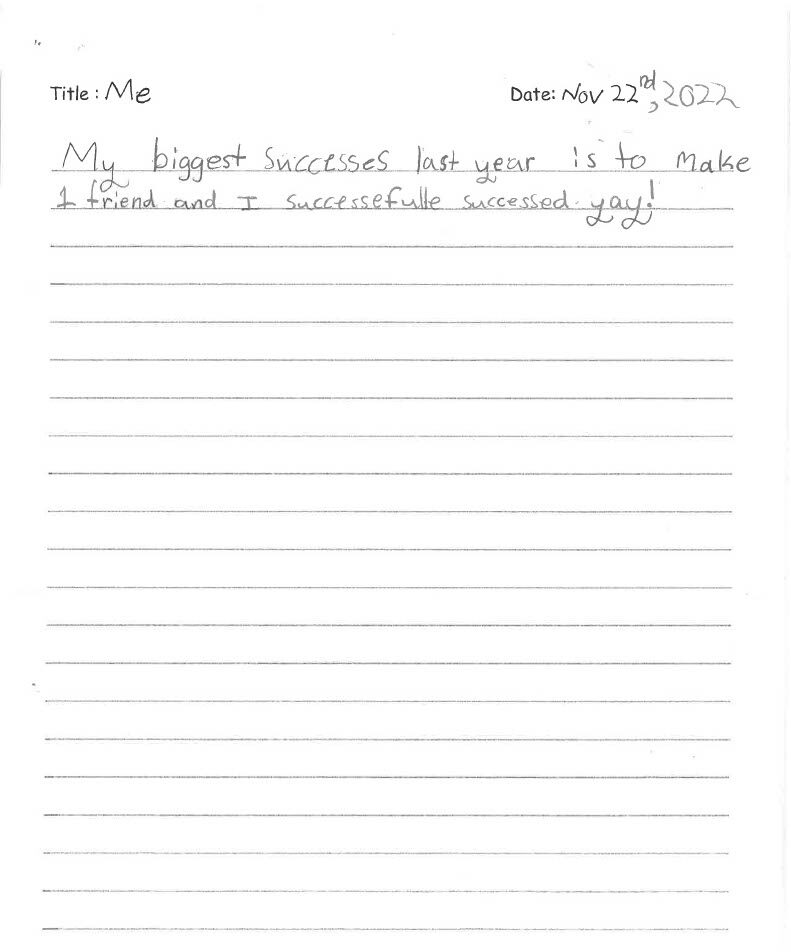 Title : Me
Date: Nov 22nd, 2022
My biggest successes last year is to make
1 friend and I successefulle successed. yay!